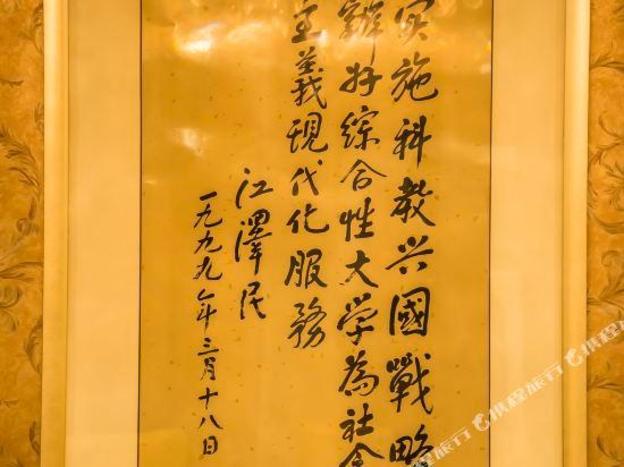 实施科教兴國戰略
辦好綜合性大学為社会
主義現代化服務
江澤民
一九九九年三月十八日
携程旅行
携程